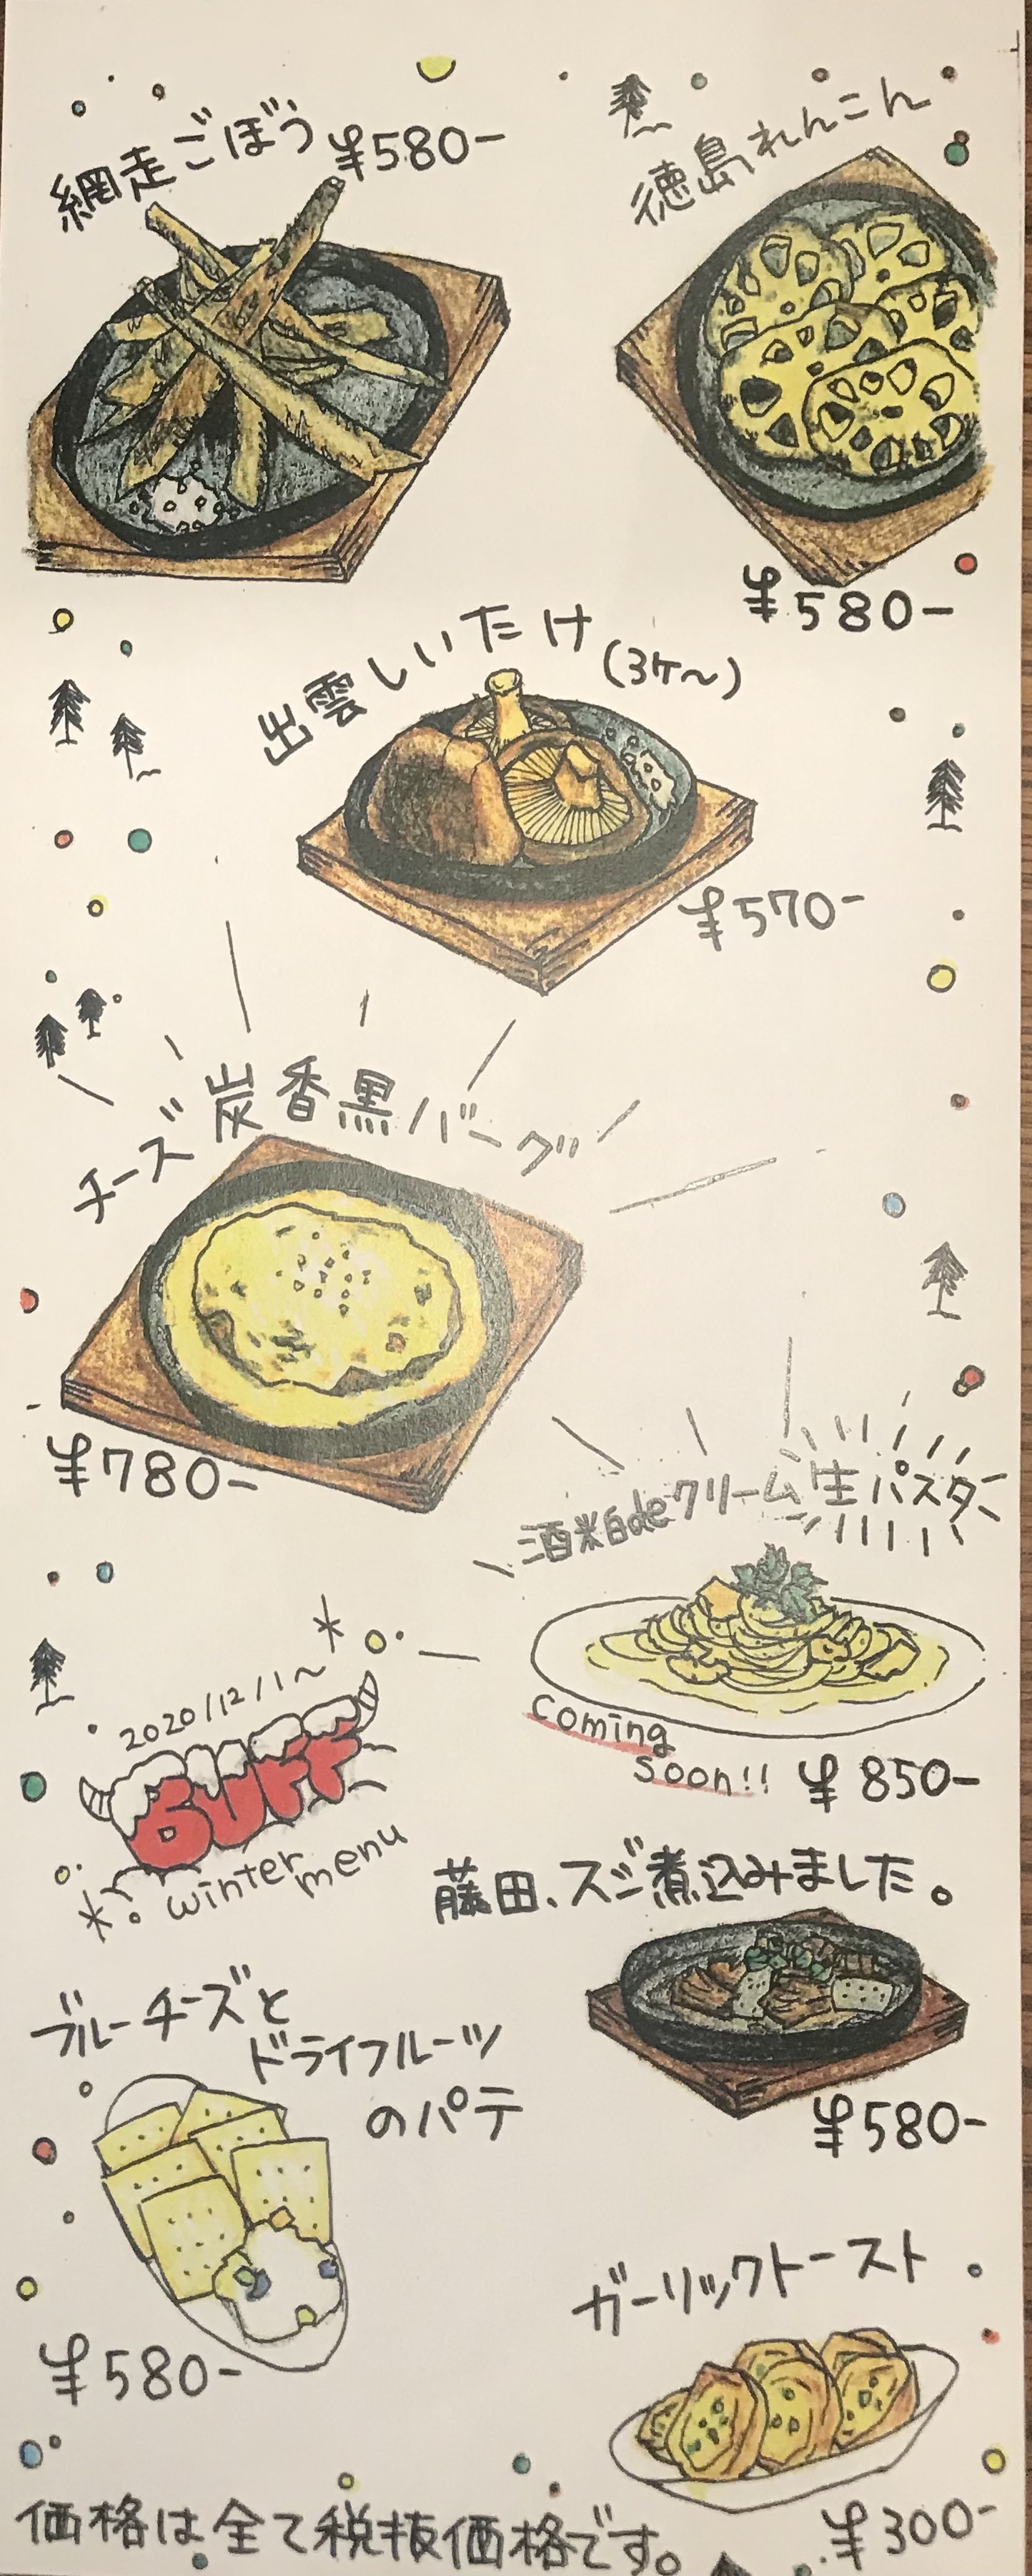 網走ごぼう ¥580-
徳島れんこん
¥580-
出雲しいたけ (3ケ〜)
¥570-
チーズ炭香黒バーグ
¥780-
酒粕deクリーム生パスタ
Coming
Soon!! ¥850-
2020/12/1〜
BUFF
winter menu
藤田、スジ煮込みました。
¥580-
ブルーチーズと
ドライフルーツ
のパテ
¥580-
ガーリックトースト
¥300-
価格は全て税抜価格です。